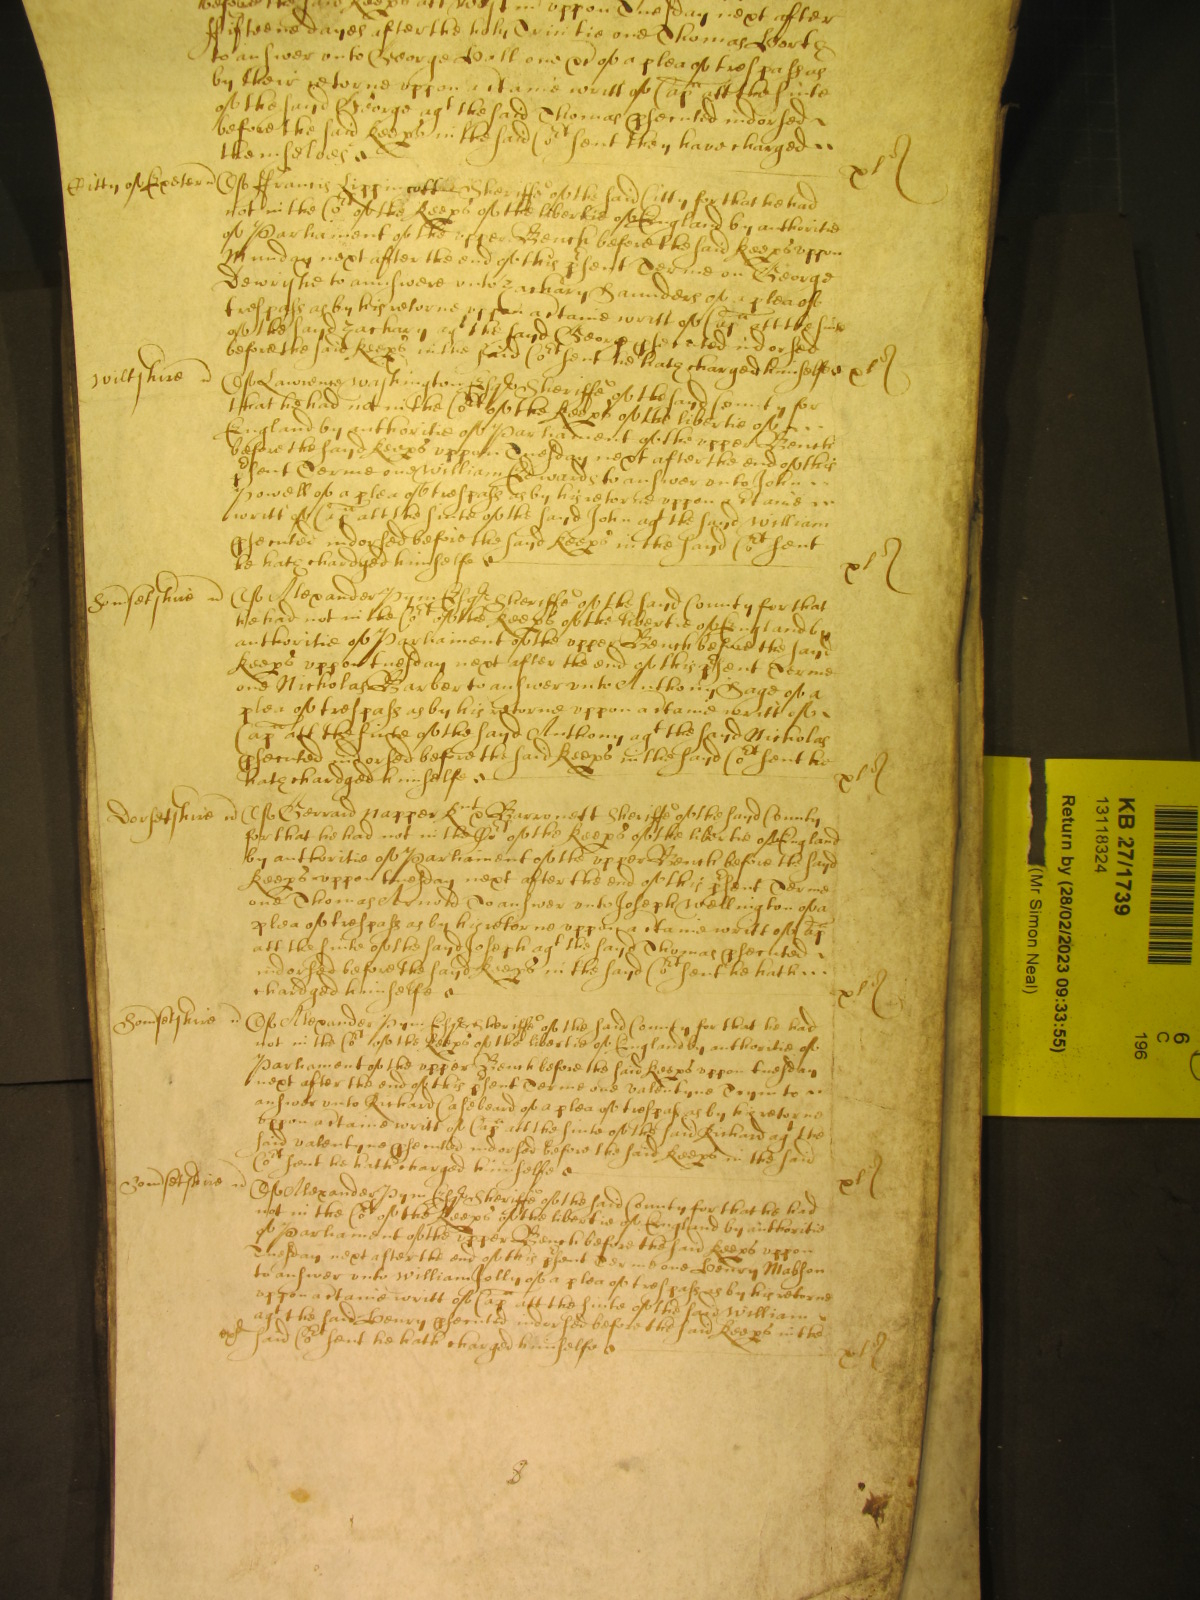 before the said Keeps att Westm uppon Tuesday next after
fifteene dayes after the holy Trinitie one Thomas
to answer unto George one of a plea of trespass as
by their retorne uppon a tcaine writt of Cap att the suite
of the sayd George agt the said Thomas psecuted indorsed
before the said Keeps in the said Cort sent they have charged
themselves
xls
Citty of Exeter Of Francis Lippincott Sheriffe of the said Citty for that he had
not in the Cort of the Keeps of the libertie of England by authoritie
of Parliament of the upper Bench before the said Keeps uppon
Munday next after the end of this psent Terme on George
Dewrishe to answere unto Zachary Saunders of a plea of
trespass as by his retorne uppon a tcaine writt of Cap att the suite
of the sayd Zachary agt the sayd George psecuted indorsed
before the said Keeps in the said Cort sent he hath charged himselfe
xls
Wiltshire Of Lawrence Washington Esqr Sheriffe of the sayd County for
that he had not in the Cort of the Keeps of the libertie of
England by authoritie of Parliament of the upper Bench
before the sayd Keeps uppon Tuesday next after the end of this
psent Terme one William Edwards to answer unto John
Powell of a plea of trespass as by his retorne uppon a tcaine
writt of Cap att the suite of the sayd John agt the sayd William
psecuted indorsed before the sayd Keeps in the sayd Cort sent
he hath chardged himselfe
xls
Somsetshire Of Alexander Pym Esqr Sheriffe of the sayd County for that
he had not in the Cort of the Keeps of the libertie of England by
authoritie of Parliament of the upper Bench before the sayd
Keeps uppon tuesday next after the end of this psent Terme
one Nicholas Barber to answer unto Anthony Sage of a
plea of trespass as by his retorne uppon a tcaine writt of
Cap att the suite of the sayd Anthony agt the sayd Nicholas
psecuted indorsed before the said Keeps in the sayd Cort sent he
hath chardged himselfe
xls
Dorsetshire Of Gerrard Napper Knt & Barronett Sheriffe of the sayd County
for that he had not in the Cort of the Keeps of the libertie of England
by authoritie of Parliament of the upper Bench before the sayd
Keeps uppon tuesday next after the end of this psent Terme
one Thomas Arnold To answer unto Joseph Wellington of a
plea of trespass as by his retorne uppon a tcaine writt of Cap
att the suite of the sayd Joseph agt the sayd Thomas psecuted
indorsed before the sayd Keeps in the sayd Cort sent he hath
chardged himselfe
xls
Somsetshire Of Alexander Pym Esqr Sheriffe of the said County for that he had
not in the Cort of the Keeps of the libertie of England by authoritie of
Parliament of the upper Bench before the said Keeps uppon tuesday
next after the end of this psent Terme one Valentyne Trym to
answer unto Richard Casebeard of a plea of trespass as by his retorne
uppon a tcaine writt of Cap att the suite of the said Richard agt the
said Valentyne psecuted indorsed before the said Keeps in the said
Cort sent he hath charged himselfe
xls
Somsetshire Of Alexander Pym Esqr Sheriffe of the said County for that he had
not in the Cort of the Keeps of the libertie of England by authoritie
of Parliament of the upper Bench before the said Keeps uppon
Tuesday next after the end of this psent Terme one Henry Mabson
to answer unto William Jolly of a plea of trespass as by his retorne
uppon a tcaine writt of Cap att the suite of the said William
agt the sayd Henry psecuted indorsed before the said Keeps in the
said Cort sent he hath charged himselfe
xls
KB 27/1739
13118324
Return by (28/02/2023 09:33:55)
(Mr Simon Neal)
6
C
196